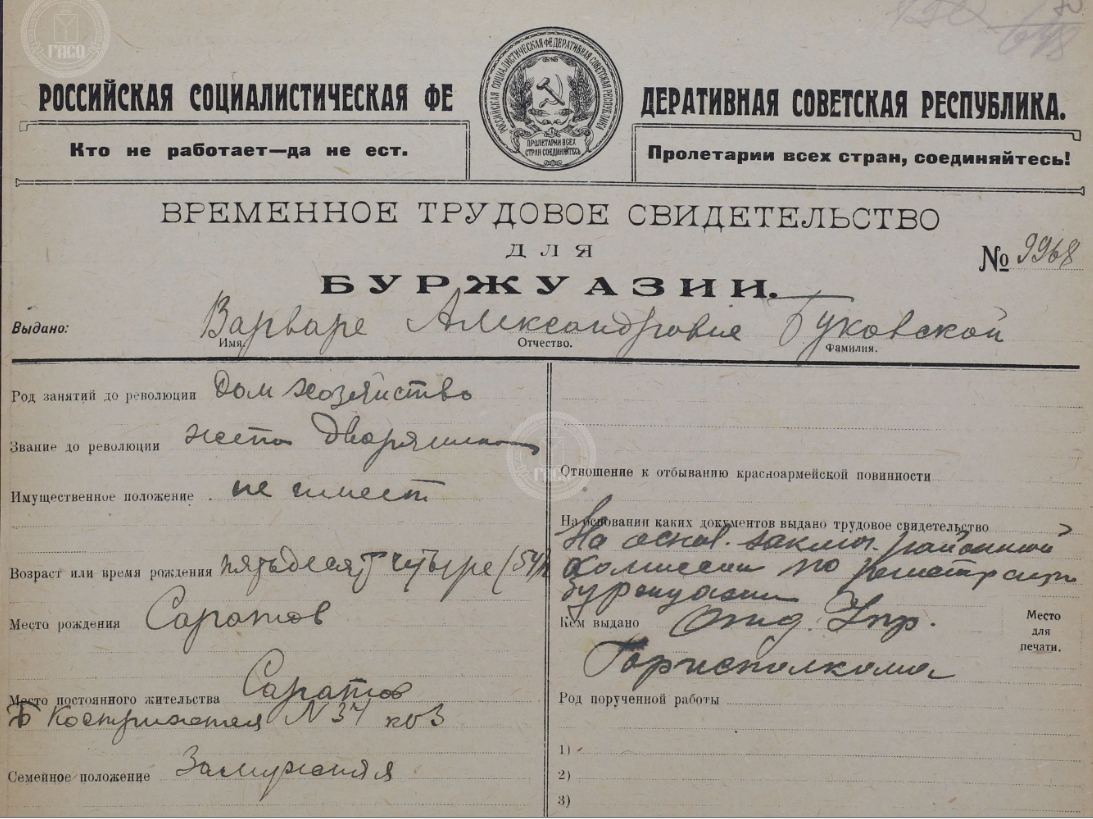 ГАСО
РОССИЙСКАЯ СОЦИАЛИСТИЧЕСКАЯ ФЕ ДЕРАТИВНАЯ СОВЕТСКАЯ РЕСПУБЛИКА.
РОССИЙСКАЯ СОЦИАЛИСТИЧЕСКАЯ ФЕДЕРАТИВНАЯ СОВЕТСКАЯ РЕСПУБЛИКА
ПРОЛЕТАРИИ ВСЕХ
СТРАН СОЕДИНЯЙТЕСЬ
Кто не работает—да не ест.
Пролетарии всех стран, соединяйтесь!
ВРЕМЕННОЕ ТРУДОВОЕ СВИДЕТЕЛЬСТВО
ДЛЯ
№ 9968
БУРЖУАЗИИ.
Выдано: Варваре Александровне Буковской
Имя. Отчество. Фамилия.
Род занятий до революции Дом хозяйство
Звание до революции Дворянка
Имущественное положение не имеет
Возраст или время рождения пятьдесят четыре (54)
Место рождения Саратов
Место постоянного жительства Саратов
Б Костриж N 37 кв 3
Семейное положение Замужняя
ГАСО
Отношение к отбыванию красноармейской повинности
На основании каких документов выдано трудовое свидетельство
На основ. заключ. районной
Комиссии по регистрации
буржуазии
Кем выдано Отд. Упр.
Горисполкома
Место
для
печати.
Род порученной работы
1)
2)
3)